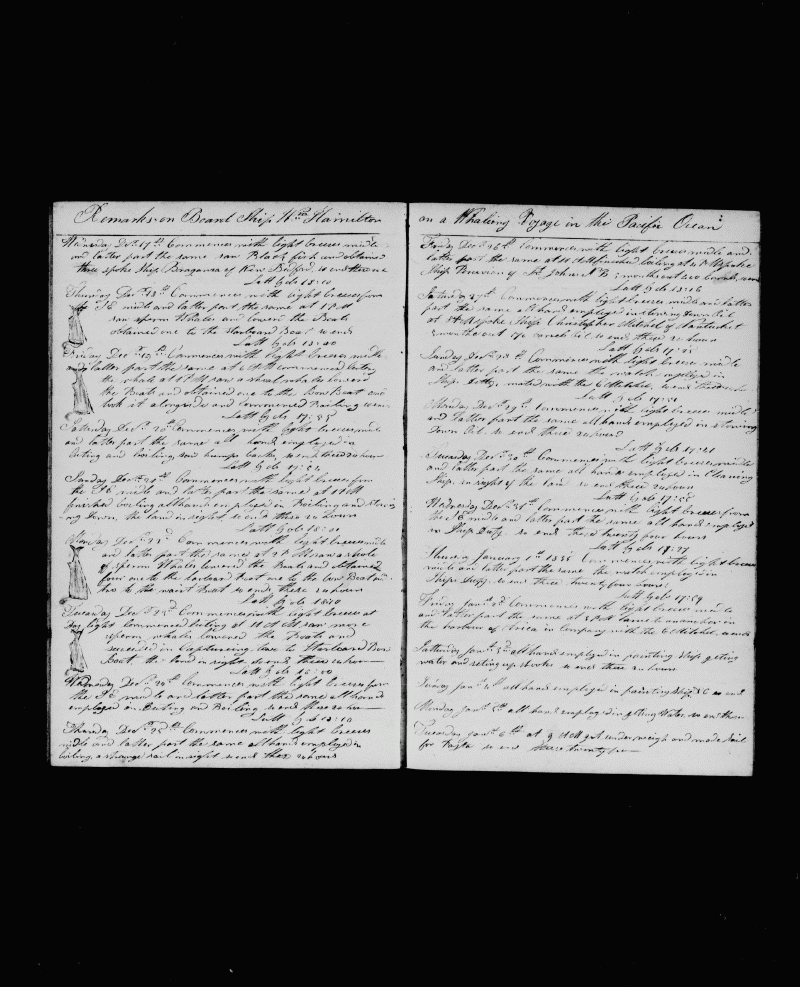 Remarks on Board Ship Wm Hamilton
Wednesday Decr 17th Commences with light breeses midle
and latter part the same saw Black fish and obtained
three spoke Ship Braganza of New Bedford so ends these
Latt by ob 18:10
Thursday Decr 18th Commences with light breeses from
the SE midle and latter part the same at 1 PM
saw sperm Whales and lowered the Boats
obtained one to the Starboard Boat so ends
Latt by ob 18:00
Friday Decr 19th Commences with light breeses midle
and latter part the same at 6 AM commenced cuting
the whale at 1 PM saw a shoal whales lowered
the Boats and obtained one to the Bow Boat and
took it alongside and Commenced Boiling so ends
Latt by ob 17:55
Saturday Decr 20th Commences with light breeses midle
and latter part the same all hands employed in
cuting and boiling saw hump backs so ends these 24 hours
Latt by ob 17:54
Sunday Decr 21st Commences with light breeses from
the SE midle and latter part the same at 10 AM
finished cuting all hands employed in Boiling and stow
ing down the land in sight so ends these 24 hours
Latt by ob 18:00
Monday Decr 22d Commences with light breeses midle
and latter part the same at 2 PM saw a shole
of sperm Whales lowered the Boats and obtained
four one to the larboard Boat one to the bow Boat and
two to the waist Boat so ends these 24 hours
Latt by ob 18:10
Tuesday Decr 23d Commences with light breeses at
day light Commenced cuting at 10 AM saw more
sperm whales lowered the Boats and
succeeded in Capturing one to Starboard Bow
Boat the land in sight so ends these 24 hours
Latt by ob 18:00
Wednesday Decr 24th Commences with light breeses from
the SE midle and latter part the same all hands
employed in Cuting and Boiling so ends these 24 hours
Latt by ob 18:10
Thursday Decr 25th Commences with light breeses
midle and latter part the same all hands employed in
boiling a strange sail in sight so ends these 24 hours
on a Whaleing Voyage in the Pacific Ocean
Friday Decr 26th Commences with light breeses midle and
latter part the same at 10 AM finished boiling at 4 PM spoke
Ship of St John N B months out 200 barrels so ends
Latt by ob 18:06
Saturday 27th Commences with light breeses midle and latter
part the same all hands employed in stowing down Oil
at PM spoke Ship Christopher Mitchel of Nantucket
months out 170 barrels oil so ends these 24 hours
Latt by ob 17:55
Sunday Decr 28th Commences with light breeses midle
and latter part the same the watch employed in
Ships Dutty mated with the C Mitchel so ends these 24 hours
Latt by ob 17:50
Monday Decr 29th Commences with light breeses midle
and latter part the same all hands employed in stowing
down Oil so ends these 24 hours
Latt by ob 17:41
Tuesday Decr 30th Commences with light breeses midle
and latter part the same all hands employed in Cleaning
Ship in sight of the land so ends these 24 hours
Latt by ob 17:58
Wednesday Decr 31st Commences with light breeses from
the SE midle and latter part the same all hands employed
in Ships Duty so ends these twenty four hours
Latt by ob 17:27
Thursday January 1st 1835 Commences with light breeses
midle and latter part the same the watch employed in
Ships Duty so ends these twenty four hours
Latt by ob 17:59
Friday Janr 2d Commences with light breeses midle
and latter part the same at PM Came to anchor in
the harbour of Arica in Company with the C Mitchel so ends
Satturday Janr 3d all hands employed in painting ship geting
water and seting up shooks so ends these 24 hours
Sunday Janr 4th all hands employed in painting ship &C so ends
Monday Janr 5th all hands employed in geting Water so ends these
Tuesday Janr 6th at 9 AM got under weigh and made sail
for so ends these twenty four